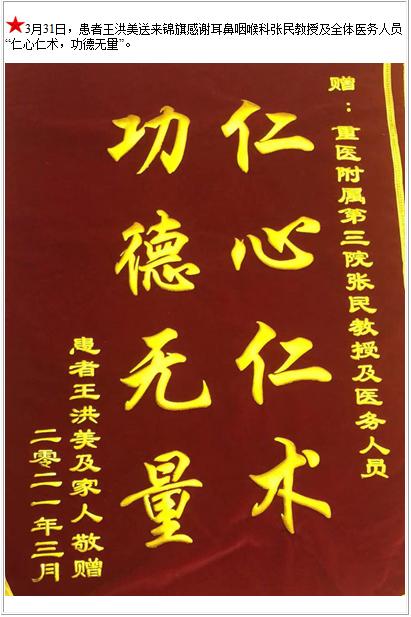 3月31日，患者王洪美送来锦旗感谢耳鼻咽喉科张民教授及全体医务人员
“仁心仁术，功德无量”。
赠：重医附属第三院张民教授及医务人员
仁心仁术
功德无量
患者王洪美及家人敬赠
二零二一年三月